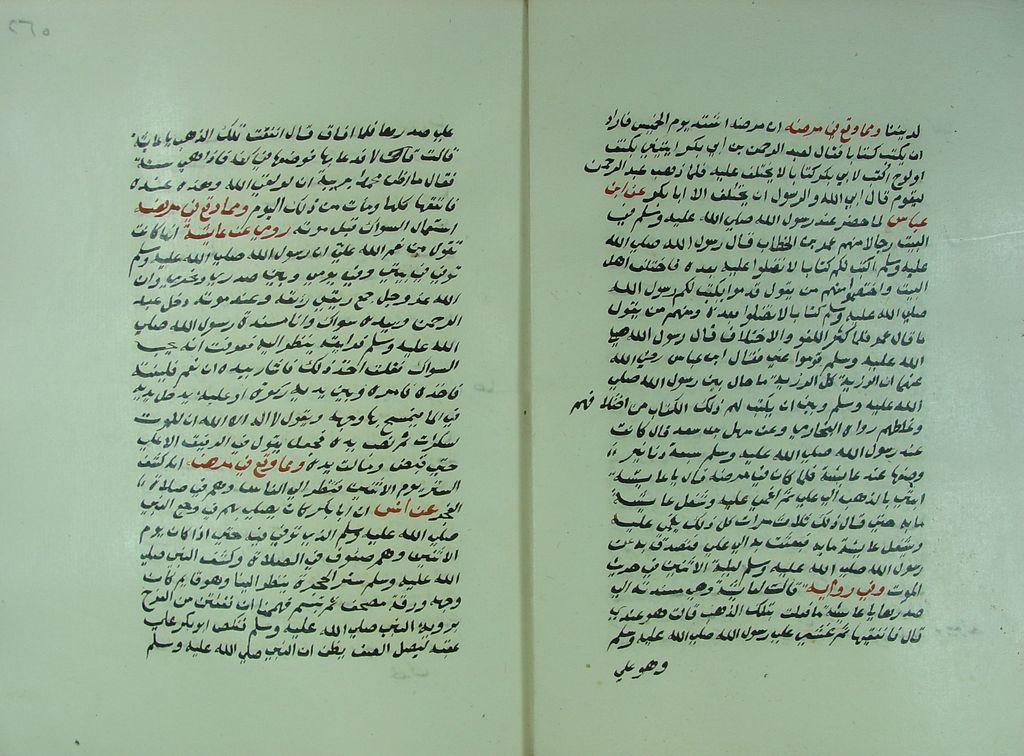 لديننا ومما وقع في مرضه ان مرضه اشتد يوم الخميس فاراد
ان يكتب كتابا فقال لعبد الرحمن بن ابي بكر ايتيني بكتف
او لوح اكتب لابي بكر كتابا لا يختلف عليه فلما ذهب عبد الرحمن
ليقوم قال ابي الله والرسول ان يختلف الا ابا بكر عن ابن
عباس لما حضر عند رسول الله صلي الله عليه وسلم في
البيت رجالا منهم عمر بن الخطاب قال رسول الله صلي الله
عليه وسلم اكتب لكم كتابا لا تضلوا عليه بعده فاختلف اهل
البيت واختصموا منهم من يقول قدموا يكتب لكم رسول الله
صلي الله عليه وسلم كتابا لا تضلوا بعده ومنهم من يقول
ما قال عمر فلما اكثر اللغو والاختلاف قال رسول الله صلي
الله عليه وسلم قوموا عني فقال ابن عباس رضي الله
عنهما ان الرزية كل الرزية ما حال بين رسول الله صلي
الله عليه وسلم وبين ان يكتب لهم ذلك الكتاب من اختلافهم
وغلطهم رواه البخاري وعن سهل بن سعد قال كانت
عند رسول الله صلي الله عليه وسلم سبعة دنانير
وضعها عند عايشة فلما كان في مرضه قال يا عايشة
ابعثي بالذهب الي علي ثم اغمي عليه وشغل عايشة
ما به حتي قال ذلك ثلاث مرات كل ذلك يغمي عليه
وشغل عايشة ما به فبعثت به الي علي فتصدق به
رسول الله صلي الله عليه وسلم ليلة الاثنين في
الموت وفي رواية قال لعايشة وهي مسندته الي
صدرها يا عايشة ما فعلت بتلك الذهب قالت هو عندي
قال فانفقيها ثم غشي علي رسول الله صلي الله عليه وسلم
وهو علي
علي صدرها فلما افاق قال انفقت تلك الذهب يا عايشة
قالت لا فدعا بها فوضعها في كفه فاذا هي ستة
فقال ما ظن محمد بربه ان لو لقي الله وهذه عنده
فانفقها كلها ومات من ذلك اليوم ومما وقع في مرضه
استعمال السواك قبل موته روي عن عايشة انها كانت
تقول من نعم الله علي ان رسول الله صلي الله عليه وسلم
توفي في بيتي وفي يومي وبين صدري ونحري وان
الله عز وجل جمع ريقي ريقه وعند موته دخل عبد
الرحمن وبيده سواك وانا مسندة رسول الله صلي
الله عليه وسلم فرايته ينظر اليه فعرفت انه يحب
السواك فقلت اخذ ذلك فاشار بيده ان نعم فلينته
فاخذه فامره وبين يديه ركوة او علبة يدخل يديه
في الما فيمسح بها وجهه ويقول لا اله الا الله ان للموت
لسكرات ثم نصب يده فجعل يقول في الرفيق الاعلي
حتي قبض ومالت يده ومما وقع في مرضه انه كشف
الستر يوم الاثنين فنظر الي الناس وهم في صلاة
الفجر عن انس ان ابا بكر كان يصلي بهم في وجع النبي
صلي الله عليه وسلم الذي توفي فيه حتي اذا كان يوم
الاثنين وهم صفوف في الصلاة وكشف النبي صلي
الله عليه وسلم ستر الحجرة ينظر الينا وهو قايم كان
وجهه ورقة مصحف ثم تبسم فهممنا ان نفتتن من الفرح
بروية النبي صلي الله عليه وسلم فنكص ابو بكر علي
عقبه ليصل الصف يظن ان النبي صلي الله عليه وسلم